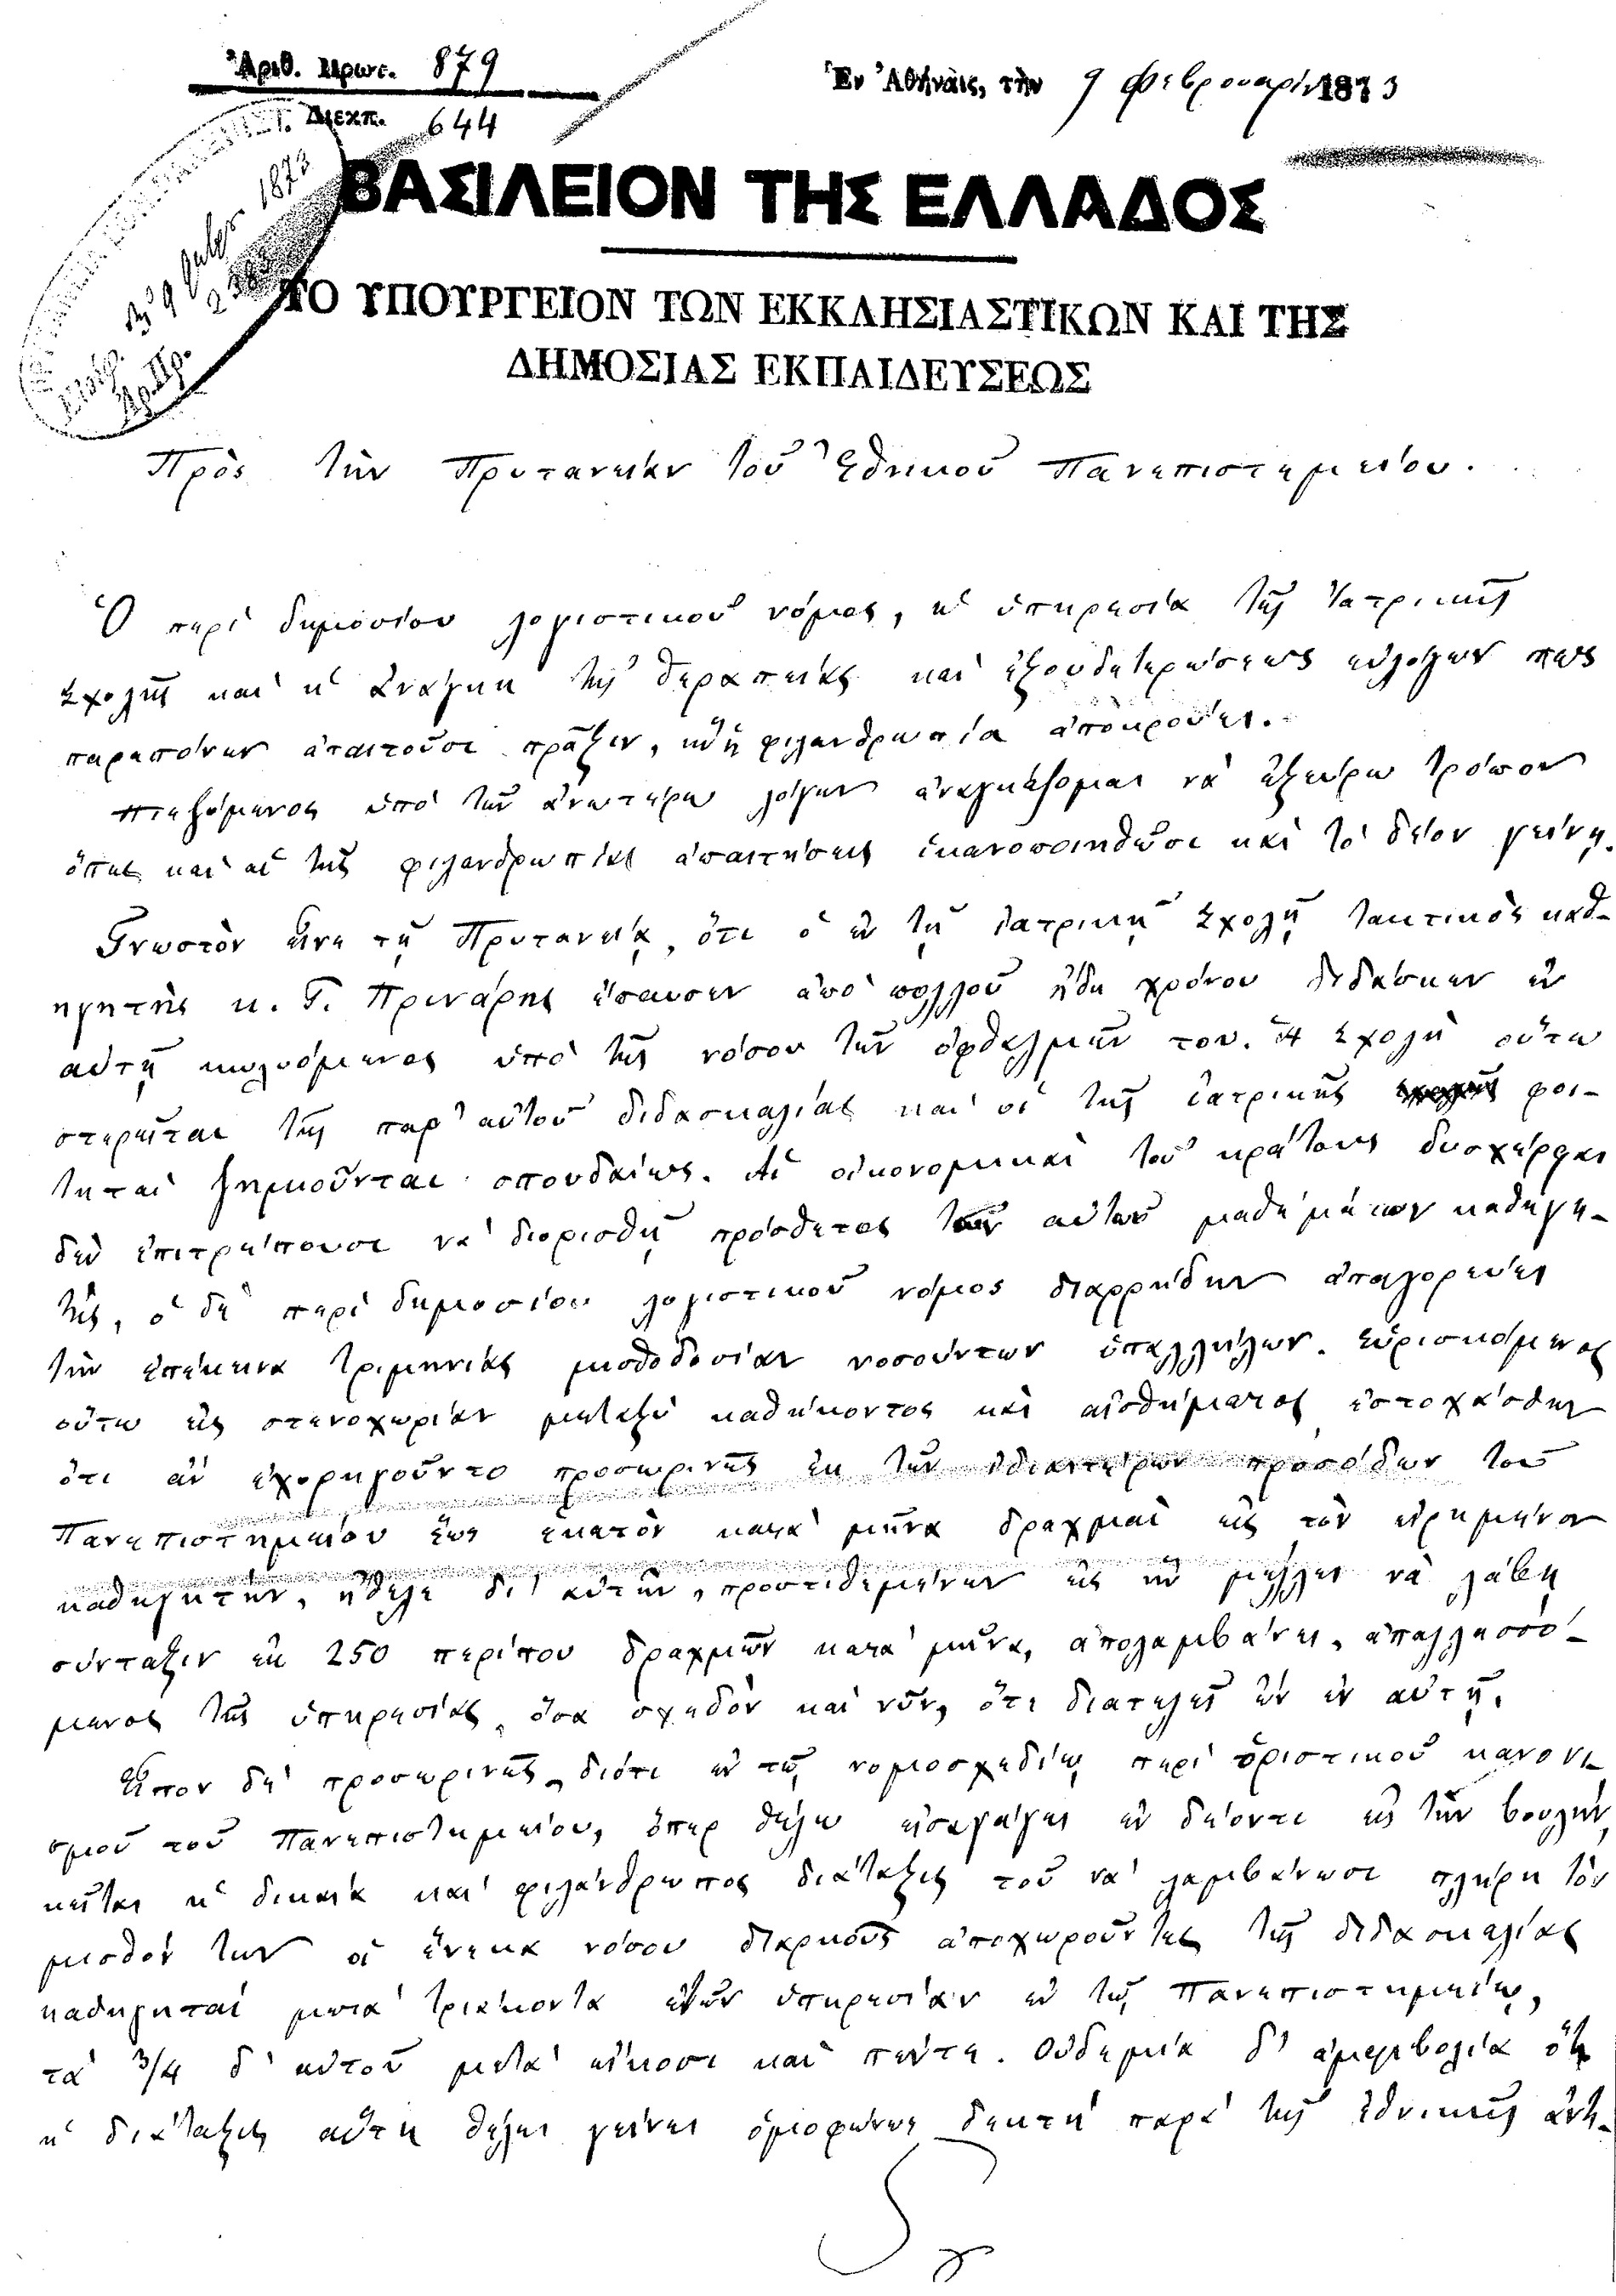 Ἀριθ. Πρωτ. 879
Διεκπ. 644
Ἐν Ἀθήναις, τὴν 9 Φεβρουαρίου 1873
1873
ΒΑΣΙΛΕΙΟΝ ΤΗΣ ΕΛΛΑΔΟΣ
ΤΟ ΥΠΟΥΡΓΕΙΟΝ ΤΩΝ ΕΚΚΛΗΣΙΑΣΤΙΚΩΝ ΚΑΙ ΤΗΣ
ΔΗΜΟΣΙΑΣ ΕΚΠΑΙΔΕΥΣΕΩΣ
Πρὸς τὴν Πρυτανείαν τοῦ Ἐθνικοῦ Πανεπιστημείου.
Ὁ περὶ δημοσίου λογιστικοῦ νόμος, ἡ ὑπηρεσία τῆς Ἰατρικῆς
Σχολῆς καὶ ἡ ἀνάγκη τῆς θεραπείας καὶ ἐξουδετερώσεως εὐλόγων πως
παραπόνων ἀπαιτοῦσι πρᾶξιν, ἣν ἡ φιλανθρωπία ἀποκρούει.
Πιεζόμενος ὑπὸ τῶν ἀνωτέρω λόγων ἀναγκάζομαι νὰ ἐξεύρω τρόπον
ὅπως καὶ αἱ τῆς φιλανθρωπίας ἀπαιτήσεις ἱκανοποιηθῶσι καὶ τὸ δέον γείνῃ.
Γνωστὸν εἶνε τῇ Πρυτανείᾳ, ὅτι ὁ ἐν τῇ ἰατρικῇ Σχολῇ τακτικὸς καθ-
ηγητὴς κ. Γ. Πρινάρης ἔπαυσεν ἀπὸ πολλοῦ ἤδη χρόνου διδάσκων ἐν
αὐτῇ κωλυόμενος ὑπὸ τῆς νόσου τῶν ὀφθαλμῶν του. Ἡ Σχολὴ οὕτω
στερεῖται τῆς παρ' αὐτοῦ διδασκαλίας καὶ οἱ τῆς ἰατρικῆς φοι-
τηταὶ ζημιοῦνται σπουδαίως. Αἱ οἰκονομικαὶ τοῦ κράτους δυσχέρειαι
δὲν ἐπιτρέπουσι νὰ διορισθῇ πρόσθετος τῶν αὐτῶν μαθημάτων καθηγη-
τής, ὁ δὲ περὶ δημοσίου λογιστικοῦ νόμος διαρρήδην ἀπαγορεύει
τὴν ἐπέκεινα τριμηνίας μισθοδοσίαν νοσούντων ὑπαλλήλων. Εὑρισκόμενος
οὕτω εἰς στενοχωρίαν μεταξὺ καθήκοντος καὶ αἰσθήματος ἐστοχάσθην
ὅτι ἂν ἐχορηγοῦντο προσωρινῶς ἐκ τῶν ἰδιαιτέρων προσόδων τοῦ
Πανεπιστημείου ἕως ἑκατὸν κατὰ μῆνα δραχμαὶ εἰς τὸν εἰρημένον
καθηγητήν, ἤθελε δι' αὐτῶν, προστιθεμένων εἰς ἣν μέλλει νὰ λάβῃ
σύνταξιν ἐκ 250 περίπου δραχμῶν κατὰ μῆνα, ἀπολαμβάνει, ἀπαλλασσό-
μενος τῆς ὑπηρεσίας, ὅσα σχεδὸν καὶ νῦν, ὅτε διατελεῖ ὢν ἐν αὐτῇ.
Εἶπον δὲ προσωρινῶς, διότι ἐν τῷ νομοσχεδίῳ περὶ ὁριστικοῦ κανονι-
σμοῦ τοῦ Πανεπιστημείου, ὅπερ θέλω εἰσαγάγει ἐν δέοντι εἰς τὴν βουλήν,
κεῖται ἡ δικαία καὶ φιλάνθρωπος διάταξις τοῦ νὰ λαμβάνωσι πλήρη τὸν
μισθόν των οἱ ἕνεκα νόσου διαρκοῦς ἀποχωροῦντες τῆς διδασκαλίας
καθηγηταὶ μετὰ τριάκοντα ἐτῶν ὑπηρεσίαν ἐν τῷ Πανεπιστημείῳ,
τὰ 3/4 δ' αὐτοῦ μετὰ εἴκοσι καὶ πέντε. Οὐδεμία δ' ἀμφιβολία ὅτι
ἡ διάταξις αὕτη θέλει γείνει ὁμοφώνως δεκτὴ παρὰ τῆς ἐθνικῆς ἀντι-